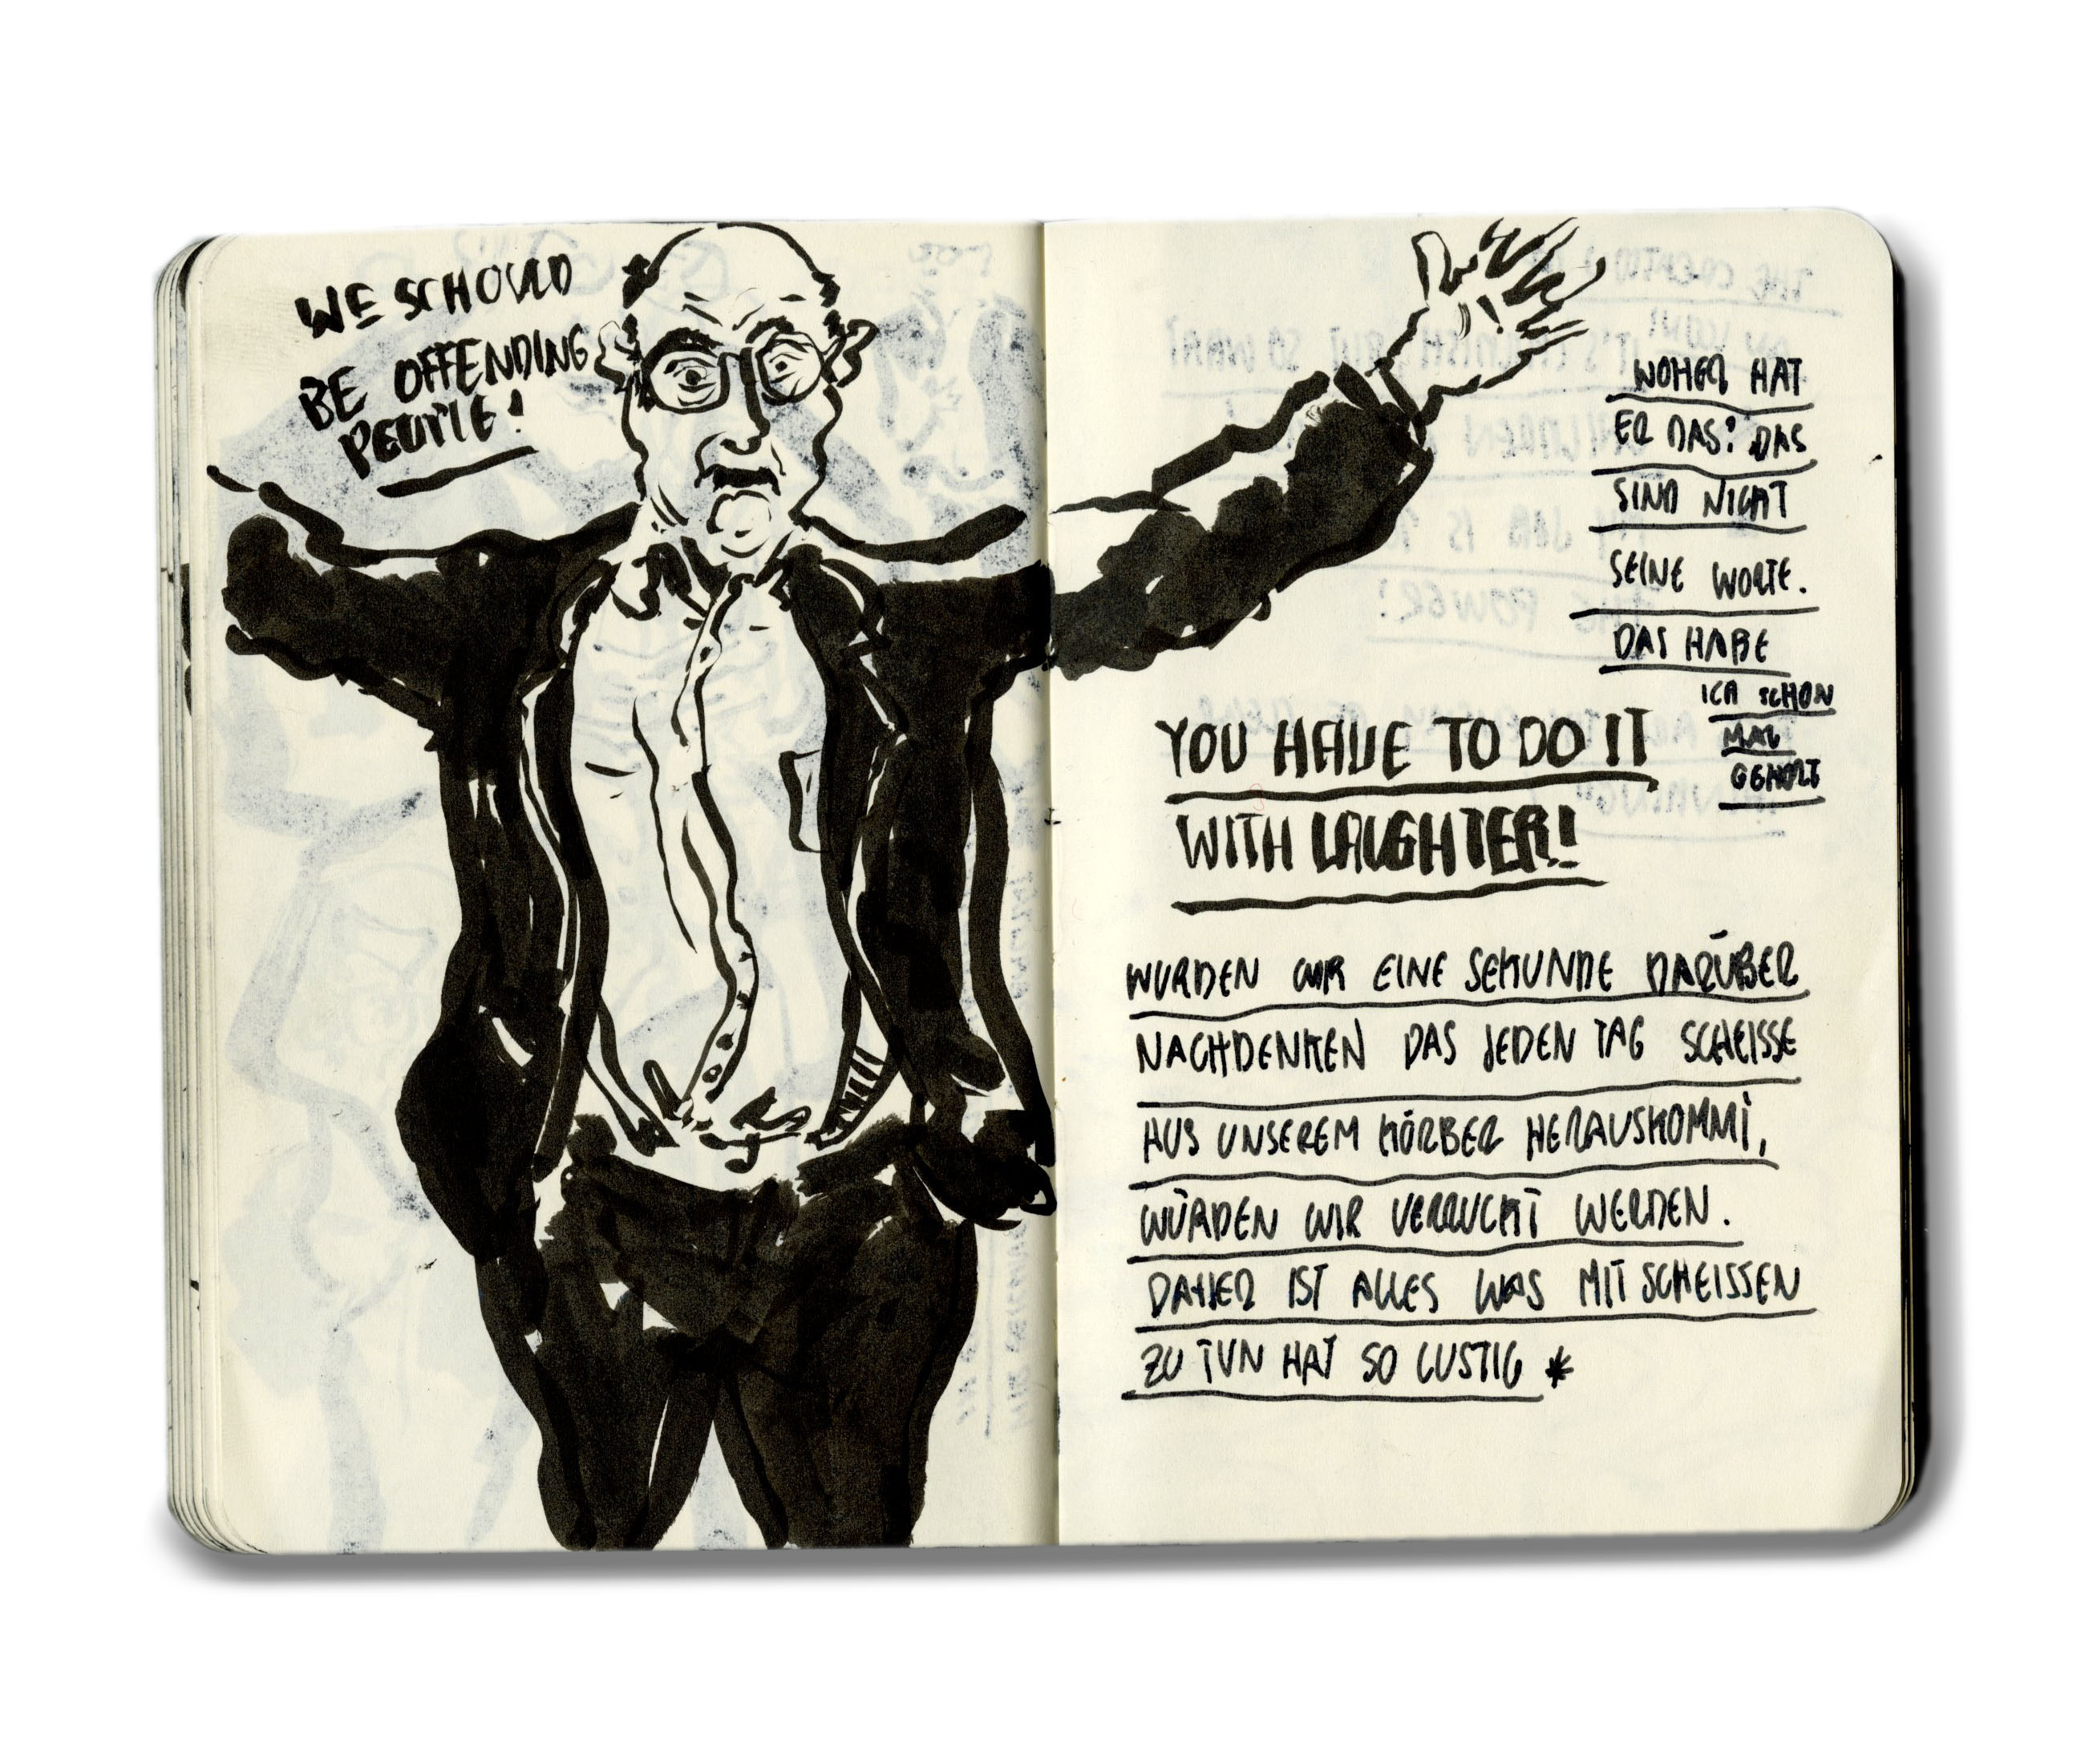 WE SCHOULD
BE OFFENDING
PEOPLE!
WOHER HAT
ER DAS? DAS
SIND NICHT
SEINE WORTE.
DAS HABE
ICH SCHON
MAL
GEHÖRT
YOU HAVE TO DO IT
WITH LAUGHTER!
WURDEN WIR EINE SEKUNDE DARÜBER
NACHDENKEN DAS JEDEN TAG SCHEISSE
AUS UNSEREM KÖRBER HERAUSKOMMT,
WÜRDEN WIR VERRUCKT WERDEN.
DAHER IST ALLES WAS MIT SCHEISSEN
ZU TUN HAT SO LUSTIG *